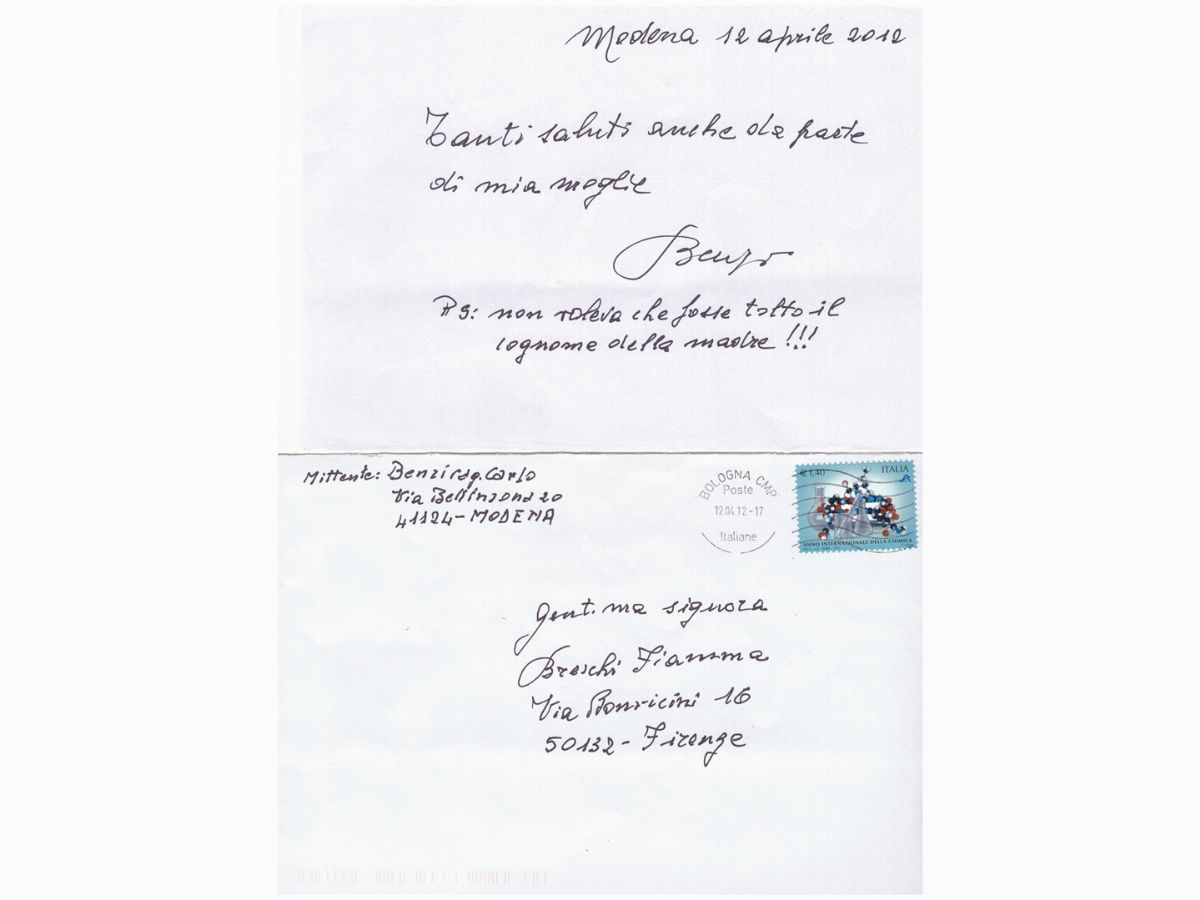 Modena 12 aprile 2012
Tanti saluti anche da parte
di mia moglie
Benzi
PS: non voleva che fosse tolto il
cognome della madre!!!
Mittente: Benzi rag. Carlo
Via Bellinzona 20
41124 - MODENA
BOLOGNA CMP
Poste
12.04.12 - 17
Italiane
€ 1,40
ITALIA
ANNO INTERNAZIONALE DELLA CHIMICA
Gent.ma signora
Breschi Fiamma
Via Bonvicini 16
50132 - Firenze